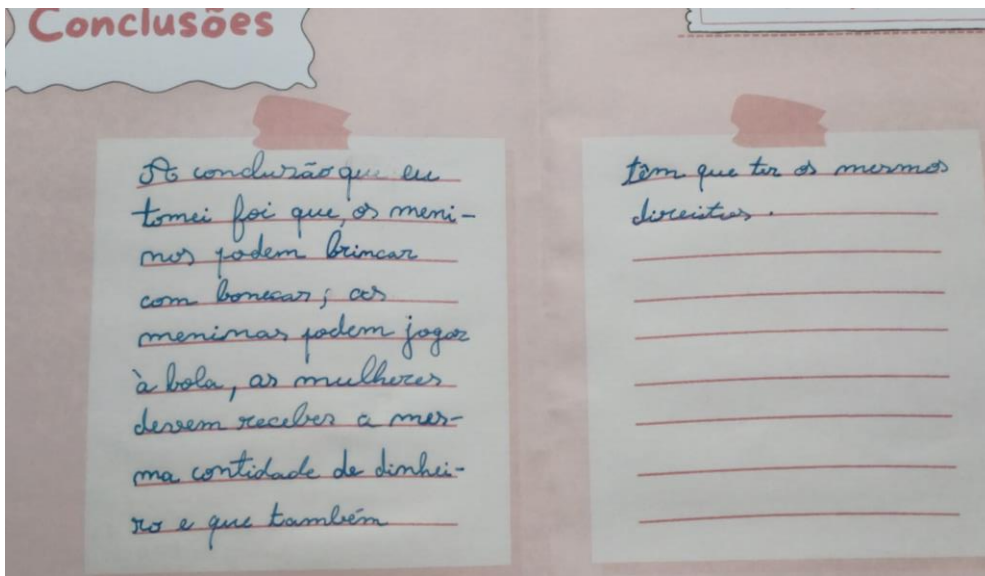 Conclusões
A conclusão que eu
tomei foi que, os meni-
nos podem brincar
com bonecas; as
meninas podem jogar
à bola, as mulheres
devem receber a mes-
ma contidade de dinhei-
ro e que também
têm que ter os mesmos
direitos.